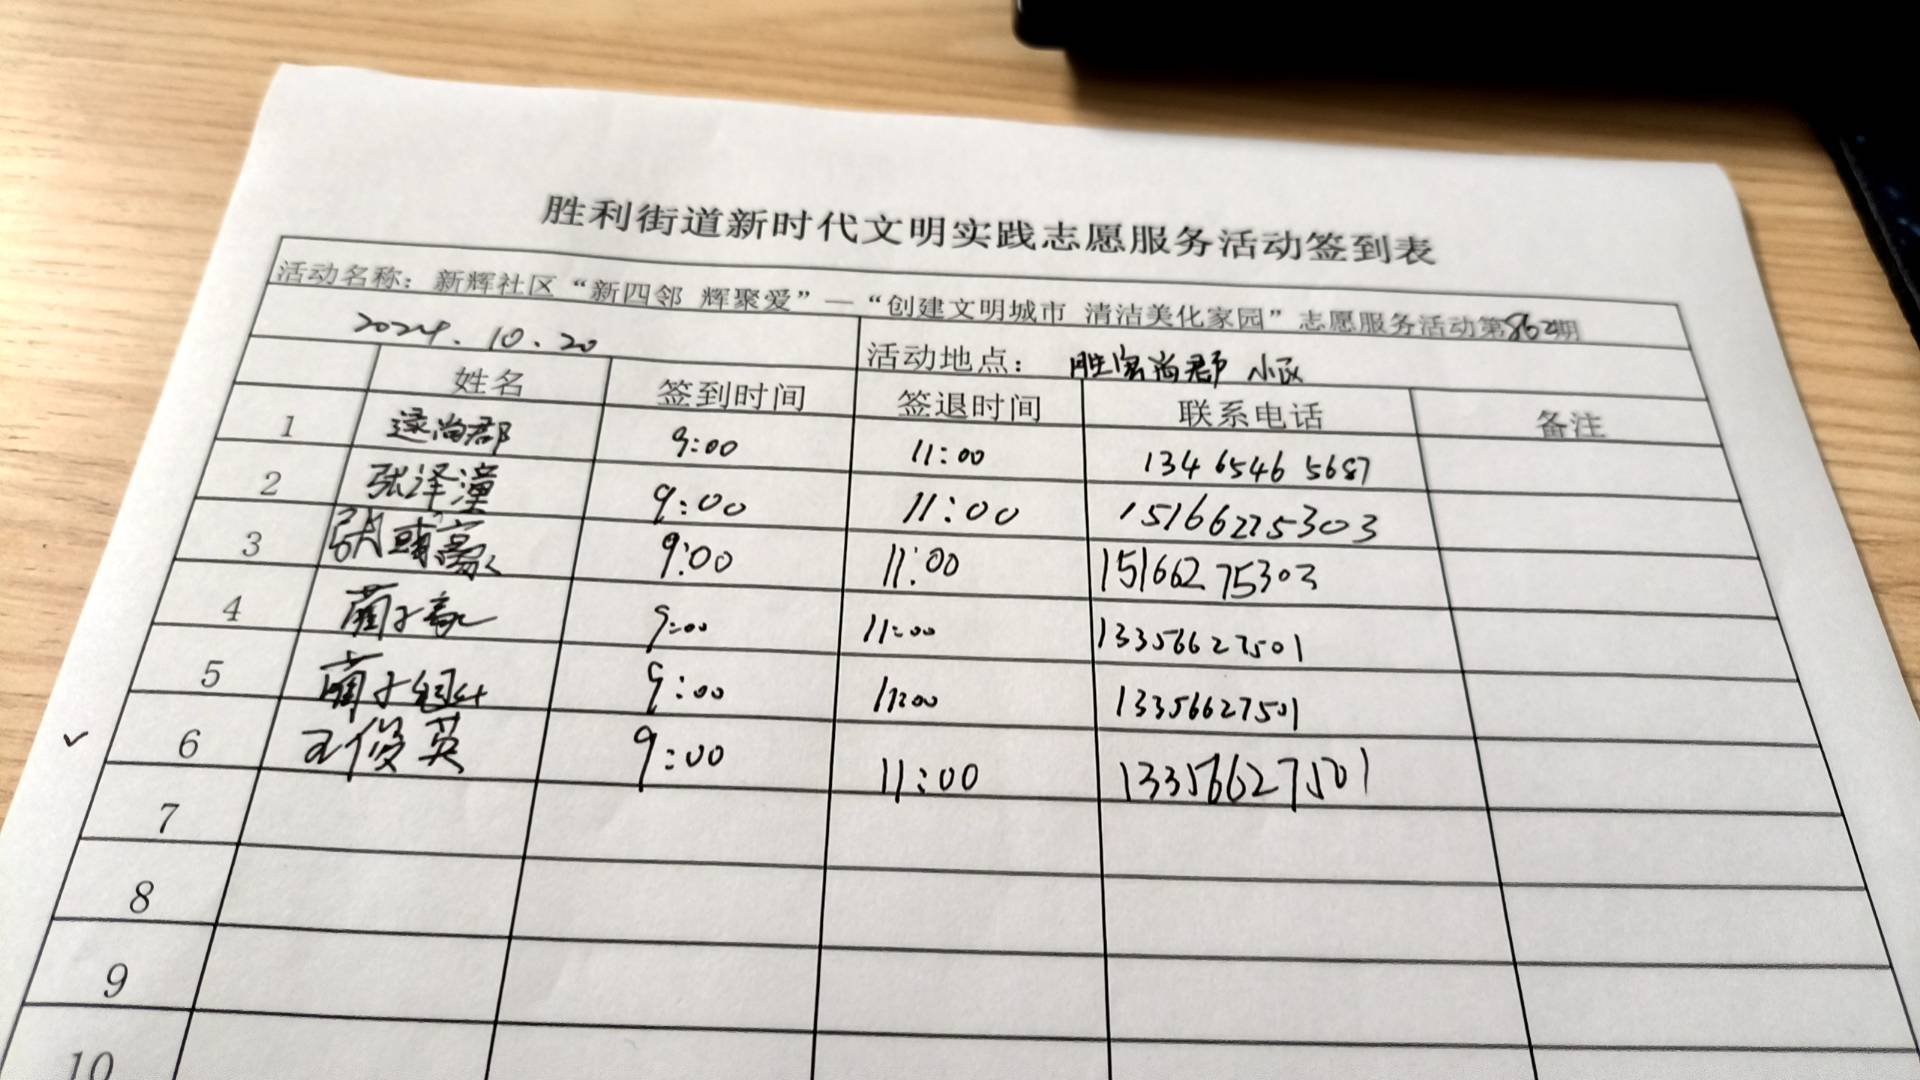 胜利街道新时代文明实践志愿服务活动签到表
活动名称：新辉社区“新四邻 辉聚爱”—“创建文明城市 清洁美化家园”志愿服务活动第862期
2024.10.20 活动地点： 胜宏尚郡 小区
姓名 签到时间 签退时间 联系电话 备注
1 尚郡 9:00 11:00 134 6546 5687
2 张泽潼 9:00 11:00 15166275303
3 张 豪 9:00 11:00 15166275303
4 蔺子 9:00 11:00 13356627501
5 蔺子 9:00 11:00 13356627501
6 王俊英 9:00 11:00 13356627501
7
8
9
10